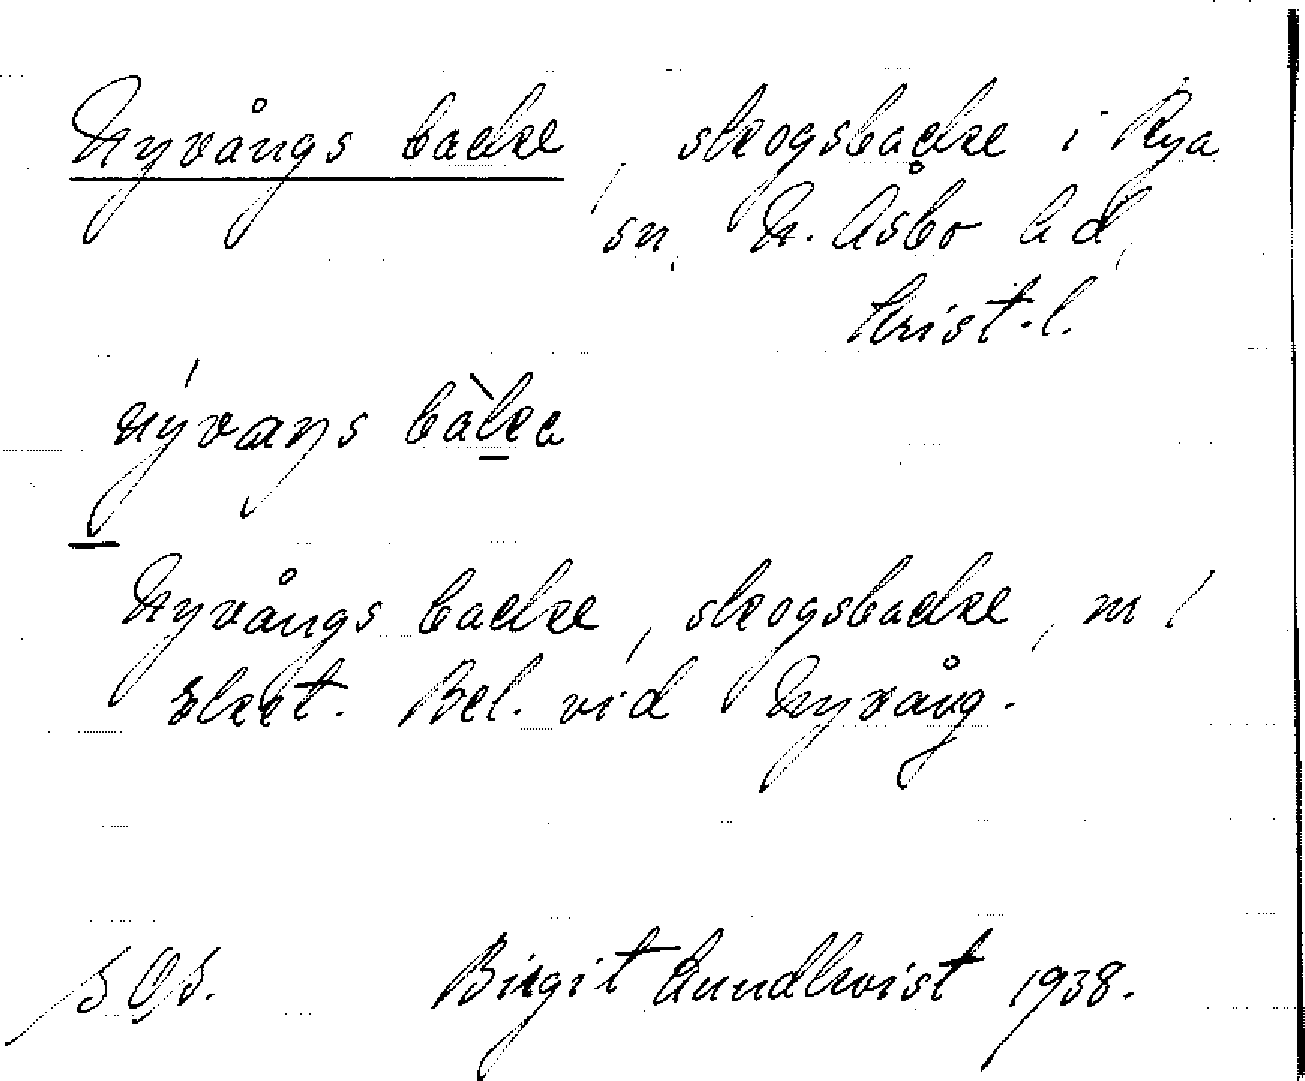 Nyvångs backe, skogsbacke i Rya
sn. N. Åsbo hd,
Krist.l.
nývaŋs bàka
Nyvångs backe, skogsbacke, m /
Bel. vid Nyvång.
SOS. Birgit Lundkvist 1938.